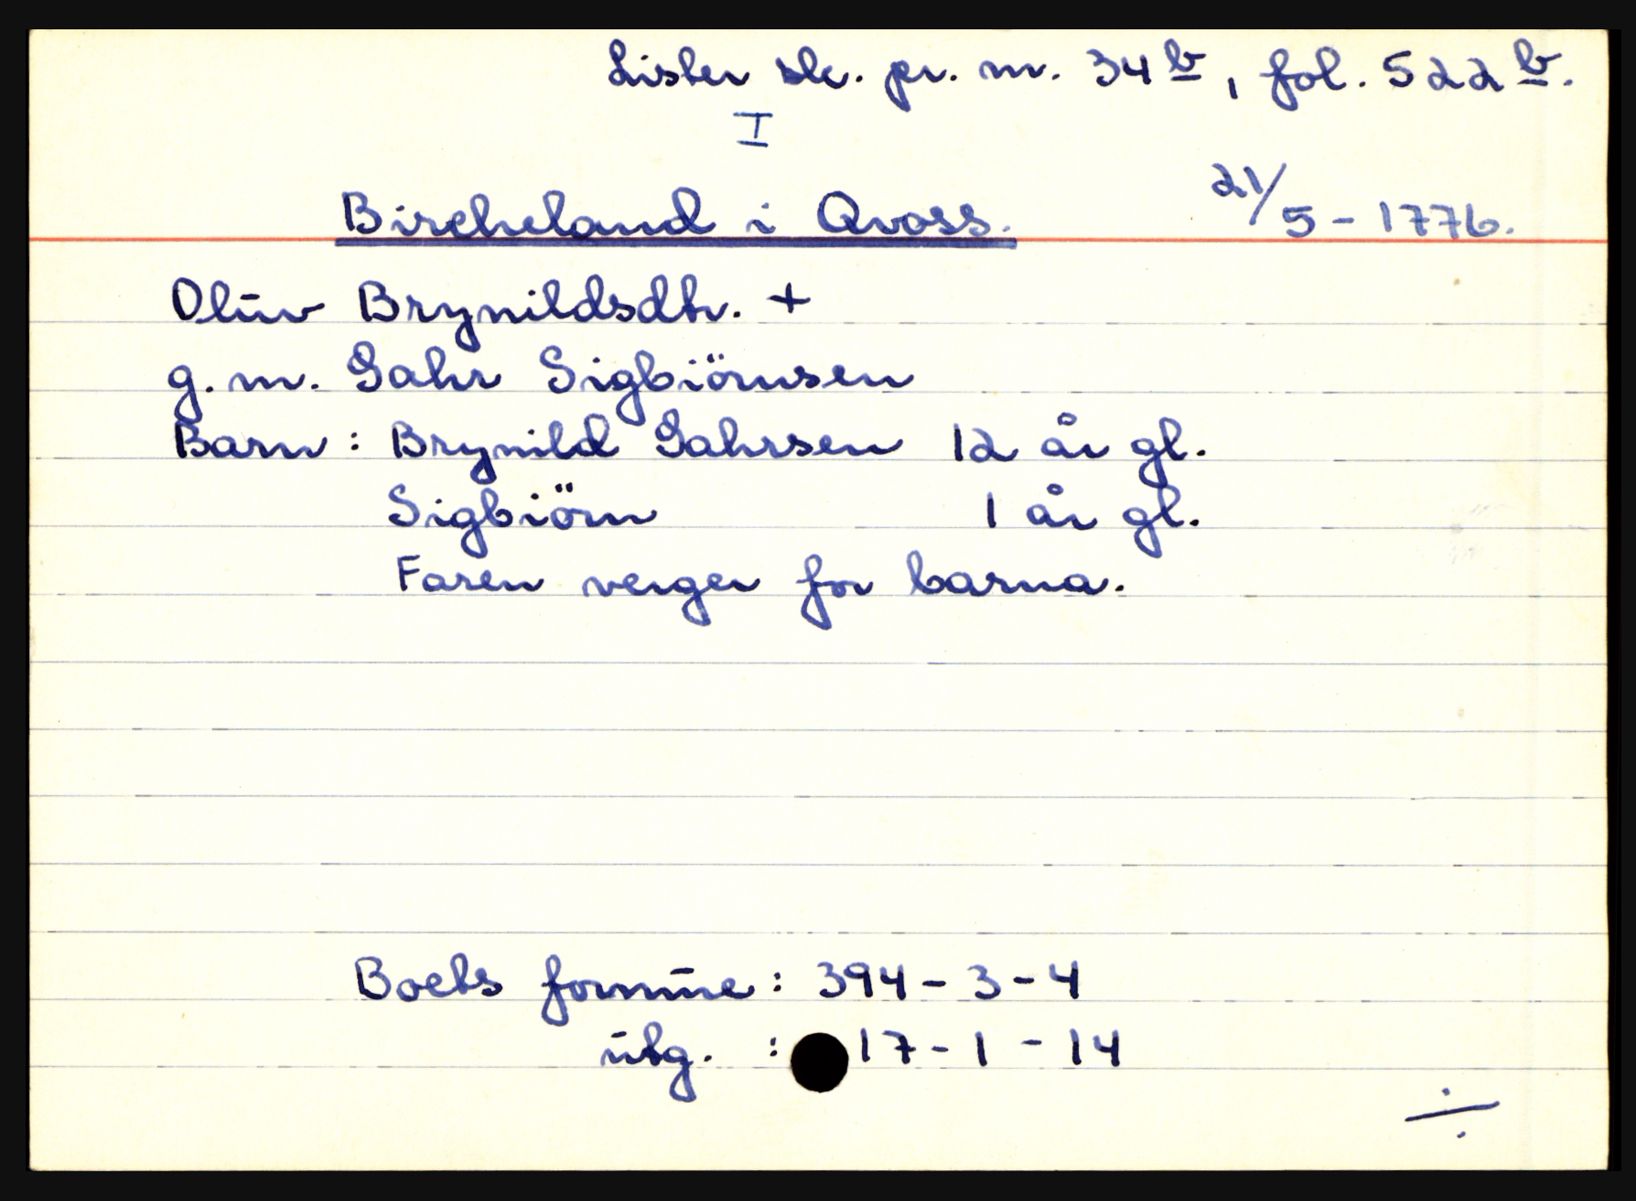 Lister sk. pr. nr. 34 b, fol. 522 b.
I
Bircheland i Qvass. 21/5 - 1776.
Oluv Brynildsdtr. +
g. m. Gahr Sigbiörnsen
Barn: Brynild Gahrsen 12 år gl.
Sigbiörn 1 år gl.
Faren verger for barna.
Boets formue: 394 - 3 - 4
utg. : 17 - 1 - 14
÷